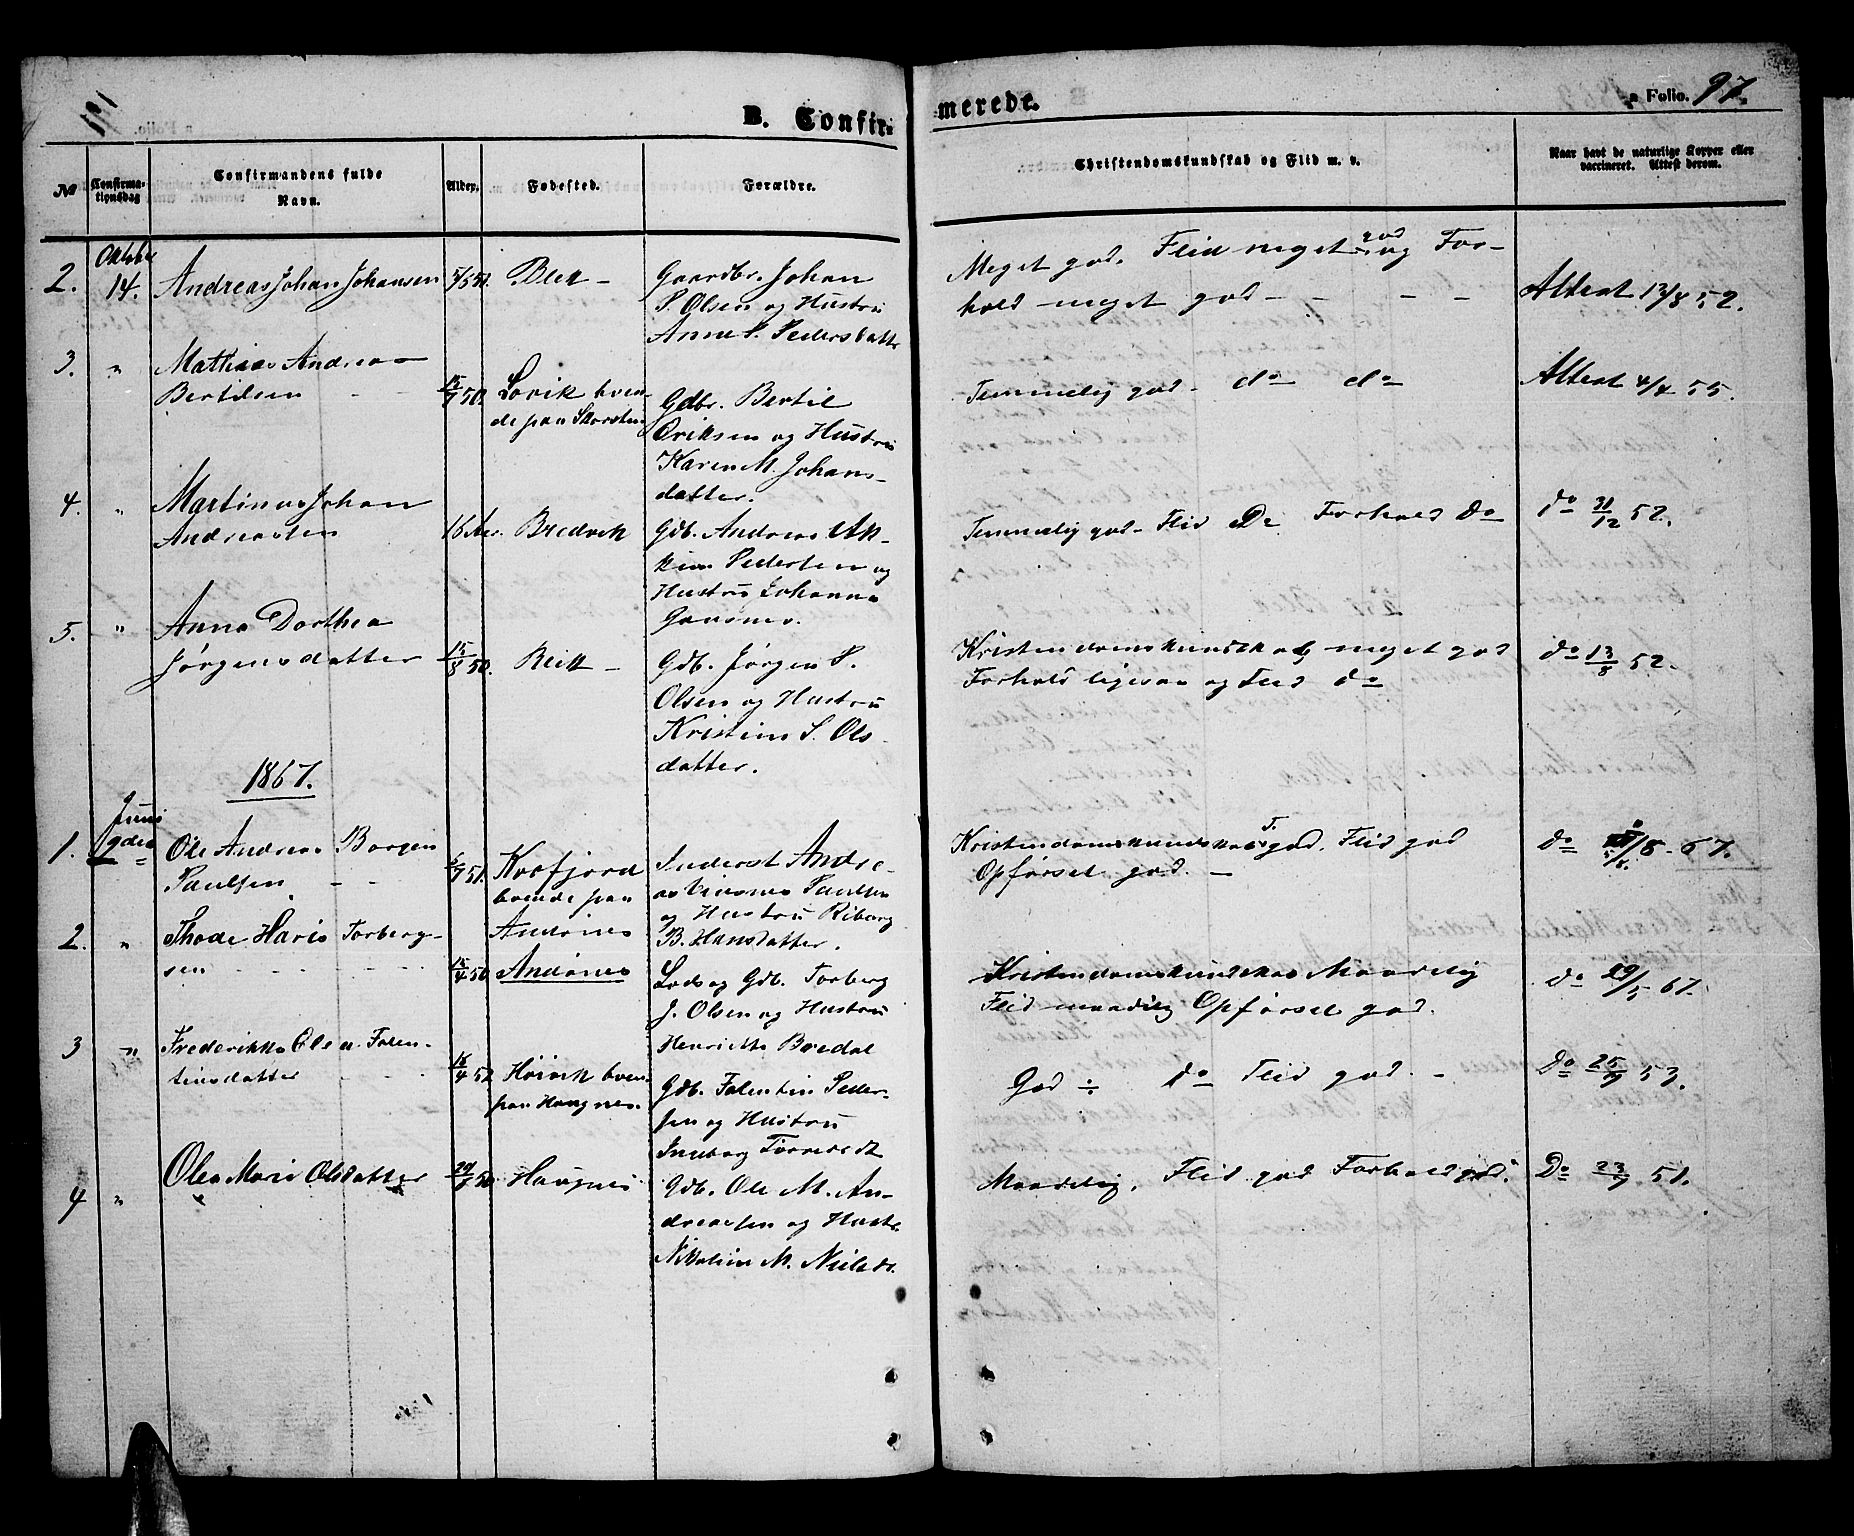 B. Confir-
merede.
a Folio. 97.
№
Confirma-
tionsdag
Confirmandens fulde
Navn.
Alder.
Fødested.
Forældre.
Christendomskundskab og Flid m. v.
Naar havt de naturlige Kopper eller
vaccineret. Attest derom.
2.
Oktober
14.
Andreas Johan Johansen
5/5 51.
Bleik -
Gaardbr. Johan
P. Olsen og Hustru
Anne P. Pedersdatter
Meget god. Flid meget god og For-
hold meget god - - - -
Attest 13/8 52.
3.
"
Mathias Andreas
Bertilsen - -
15/7 50.
Lovik boen-
de paa Skorsten
Gdbr. Bertil
Eriksen og Hustru
Karen M. Johans-
datter.
Temmelig god - do do
Attest 4/4 55.
4.
"
Martinus Johan
Andreassen
16 Aar.
Bredvik
Gdb. Andreas
Pedersen og
Hustru Johanna
Temmelig god - Flid Do Forhold Do
do 31/12 52.
5.
"
Anna Dorthea
Jørgensdatter
15/8 50.
Bleik -
Gdb. Jørgen P.
Olsen og Hustru
Kristine S. Ols-
datter.
Kristendomskundskab meget god
Forhold ligesaa og Flid do
do 13/8 52.
1867.
1.
Juni
9de
Ole Andreas Borgen
Paulsen - -
6/7 51.
Kvefjord
boende paa
Andenes
Inderst Andre-
as Paulsen
og Hustru Riborg
B. Hansdatter.
Kristendomskundskab T. god. Flid god
Opførsel god. -
do /8 - 67.
2.
"
Thode Haris Torberg-
sen - - - -
15/4 50
Andenes
Lods og Gdb. Torberg
J. Olsen og Hustru
Henriette Bredal
Kristendomskundskab Maadelig
Flid maadelig Opførsel god.
do 29/5 67.
3
"
Frederikke Olea Falen-
tinsdatter - - -
16/4 52
Høivik boen-
paa Haugnes.
Gdb. Falentin Peder-
sen og Hustru
Ingeborg
God ÷ do Flid god. -
Do 25/9 53.
4
"
Olea Marie Olsdatter
29/9 50
Haugnes
Gdb. Ole M. An-
dreassen og Hustr.
Nikoline M. Nielsdr.
Maadelig. Flid god Forhold god.
Do 23/9 51.